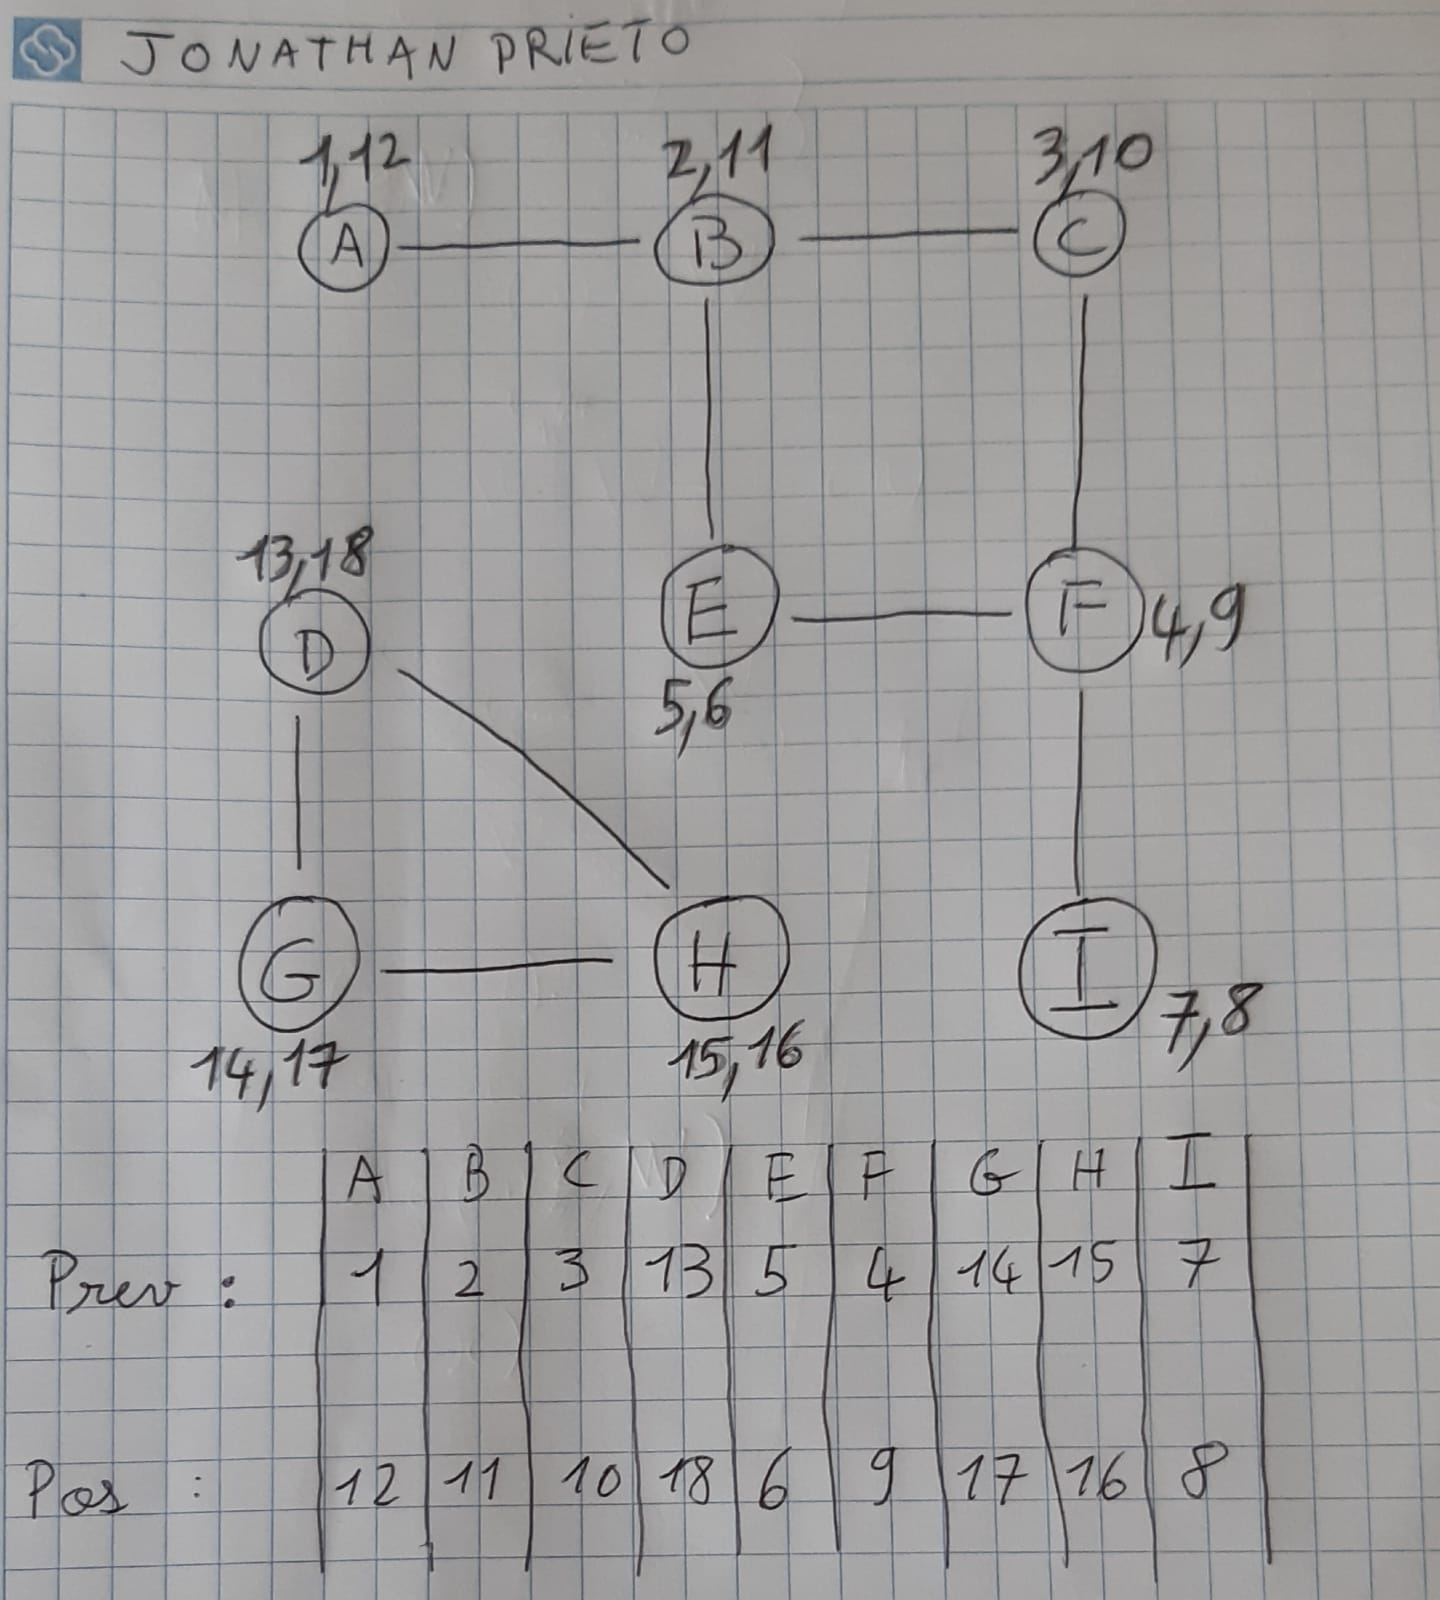 JONATHAN PRIETO
1,12 2,11 3,10
A B C
13,18
D E F 4,9
5,6
G H I
7,8
14,17 15,16
A B C D E F G H I
Prev : 1 2 3 13 5 4 14 15 7
Pos : 12 11 10 18 6 9 17 16 8